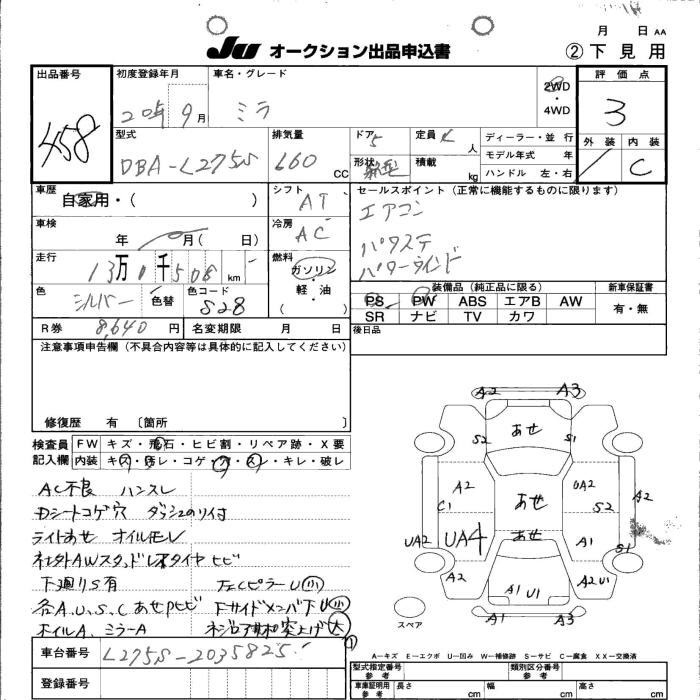 月 日 AA
JU オークション出品申込書
② 下見用
出品番号 初度登録年月 車名・グレード 評価点
458 20年 9月 ミラ 2WD ・ 4WD 3
外装 内装
C
型式 排気量 ドア 定員 ディーラー・並行
DBA-L275S 660 CC 5 4 人 モデル年式 年
形状 積載 kg ハンドル 左・右
車歴 シフト セールスポイント(正常に機能するものに限ります)
自家用・( ) AT エアコン
車検 冷房
年 月( 日) AC パワステ
走行 燃料 パワーウインド
13万0千508km ガソリン・軽・油 ( )
装備品(純正品に限る) 新車保証書
色 色替 色コード PS PW ABS エアB AW 有・無
シルバー S28 SR ナビ TV カワ
R券 8,640円 名変期限 月 日 後日品
注意事項申告欄(不具合内容等は具体的に記入してください)
修復歴 有 〔箇所 〕
検査員 FW キズ・飛石・ヒビ割・リペア跡・X要
記入欄 内装 キズ・汚レ・コゲ・穴・スレ・キレ・破レ
AC不良 ハンスレ
Dシートコゲ穴 ダッシュのり付
ライトあせ オイルモレ
社外AWスタッドレスタイヤ ヒビ
下廻りS有 左Cピラー U小
各A,U,S,C あせPヒビ 下サイドメンバ下U小
ホイルA、ミラーA 突上げ大
A2 A3
S2 あせ S1
A2 UA2 A2
C1 あせ S2
UA2 UA4 あせ A1 S1
A2 A2 U1
A1 U1
A1 A3
スペア
A-キズ E-エクボ U-凹み W-補修跡 S-サビ C-腐食 XX-交換済
車台番号 L275S-2035825
登録番号
型式指定番号 類別区分番号
車庫証明用参考 長さ cm 幅 cm 高さ cm